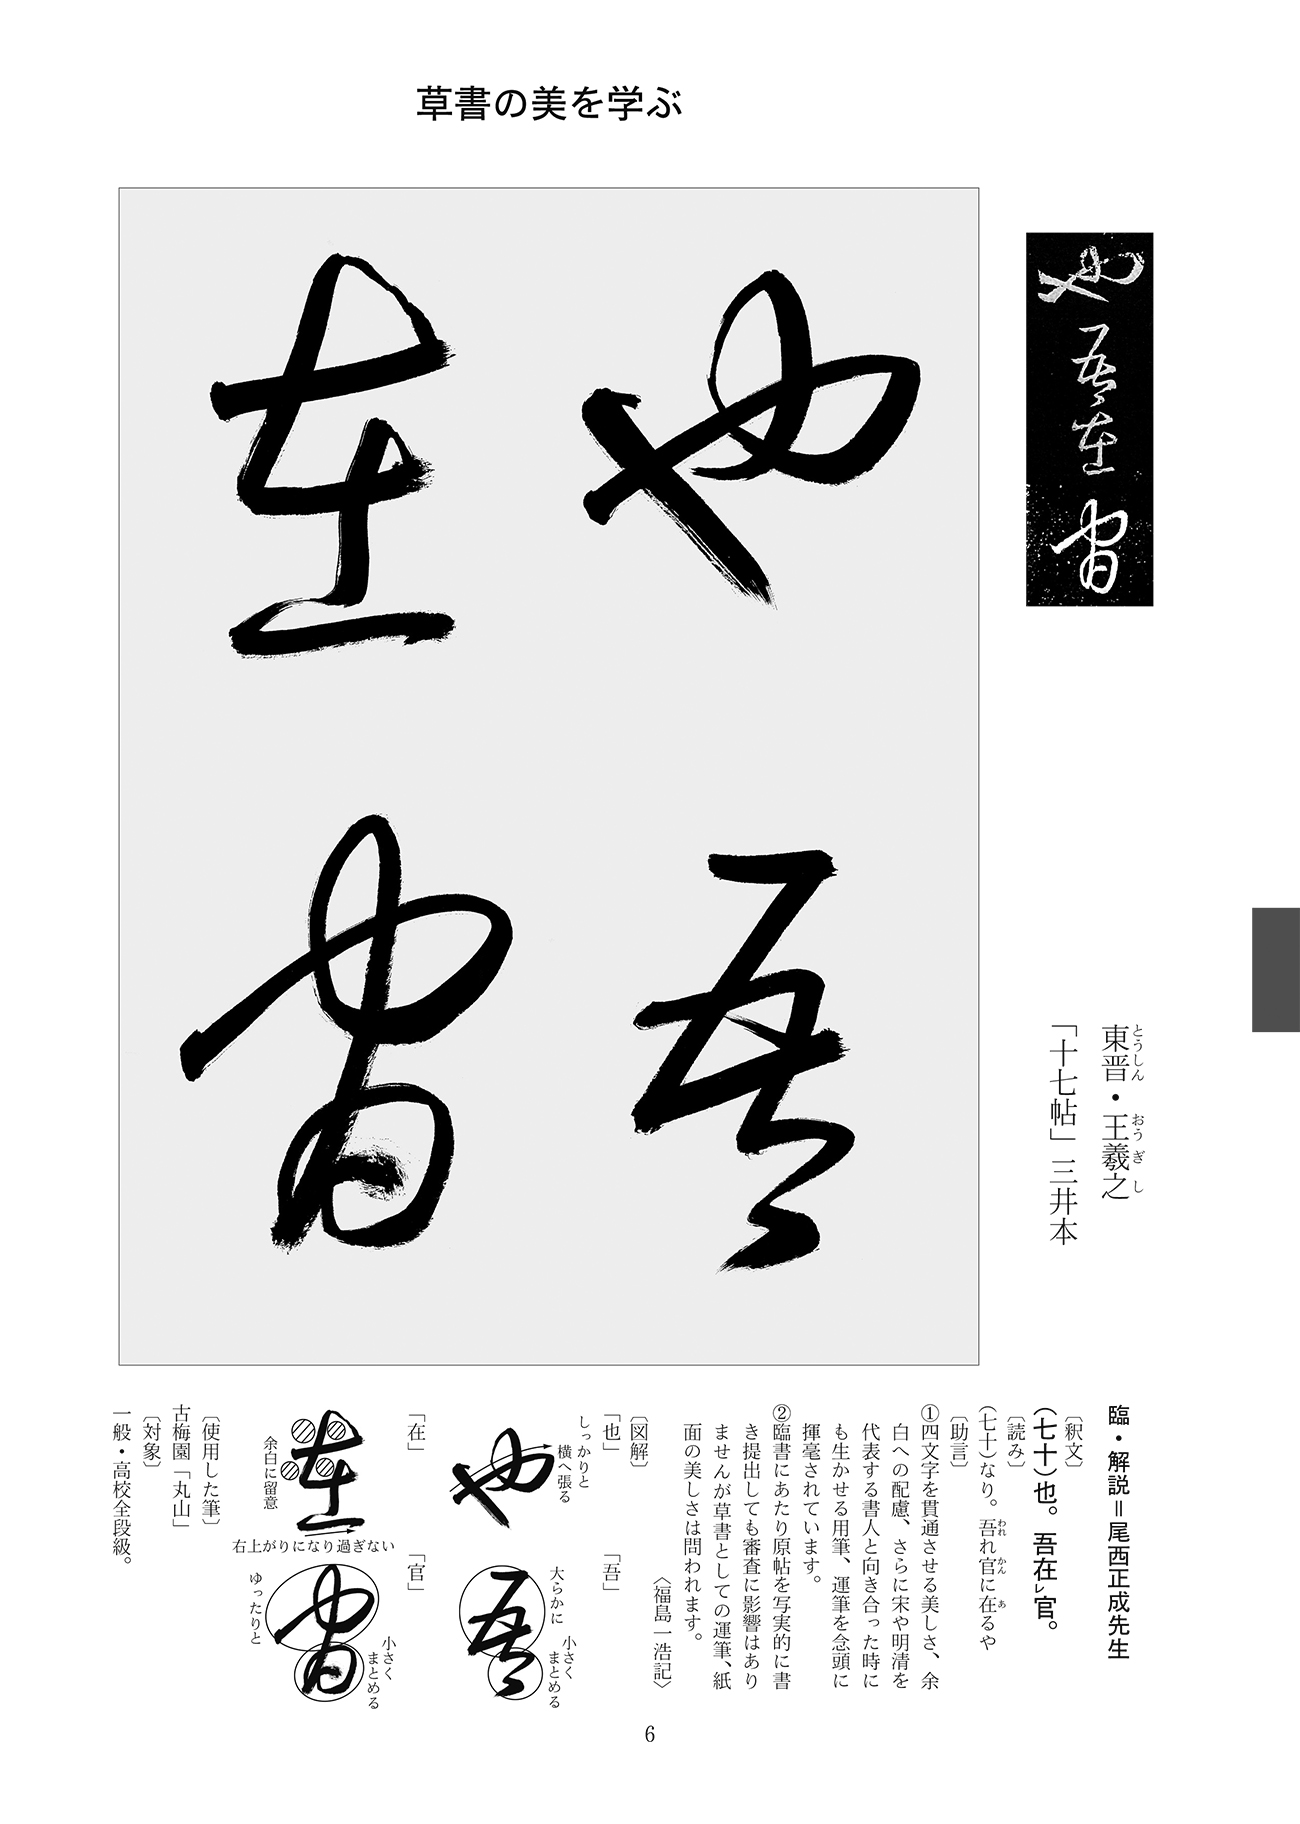 草書の美を学ぶ
也吾在官
也吾
在官
東晋・王羲之
とうしん おうぎし
「十七帖」三井本
臨・解説＝尾西正成先生
〔釈文〕
（七十）也。吾在レ官。
〔読み〕
（七十）なり。吾れ官に在るや
われ かん あ
〔助言〕
①四文字を貫通させる美しさ、余
白への配慮、さらに宋や明清を
代表する書人と向き合った時に
も生かせる用筆、運筆を念頭に
揮毫されています。
②臨書にあたり原帖を写実的に書
き提出しても審査に影響はあり
ませんが草書としての運筆、紙
面の美しさは問われます。
〈福島一浩記〉
〔図解〕
「也」
しっかりと
横へ張る
也
「吾」
大らかに
小さく
まとめる
吾
「在」
在
余白に留意
右上がりになり過ぎない
「官」
官
ゆったりと
小さく
まとめる
〔使用した筆〕
古梅園「丸山」
〔対象〕
一般・高校全段級。
6